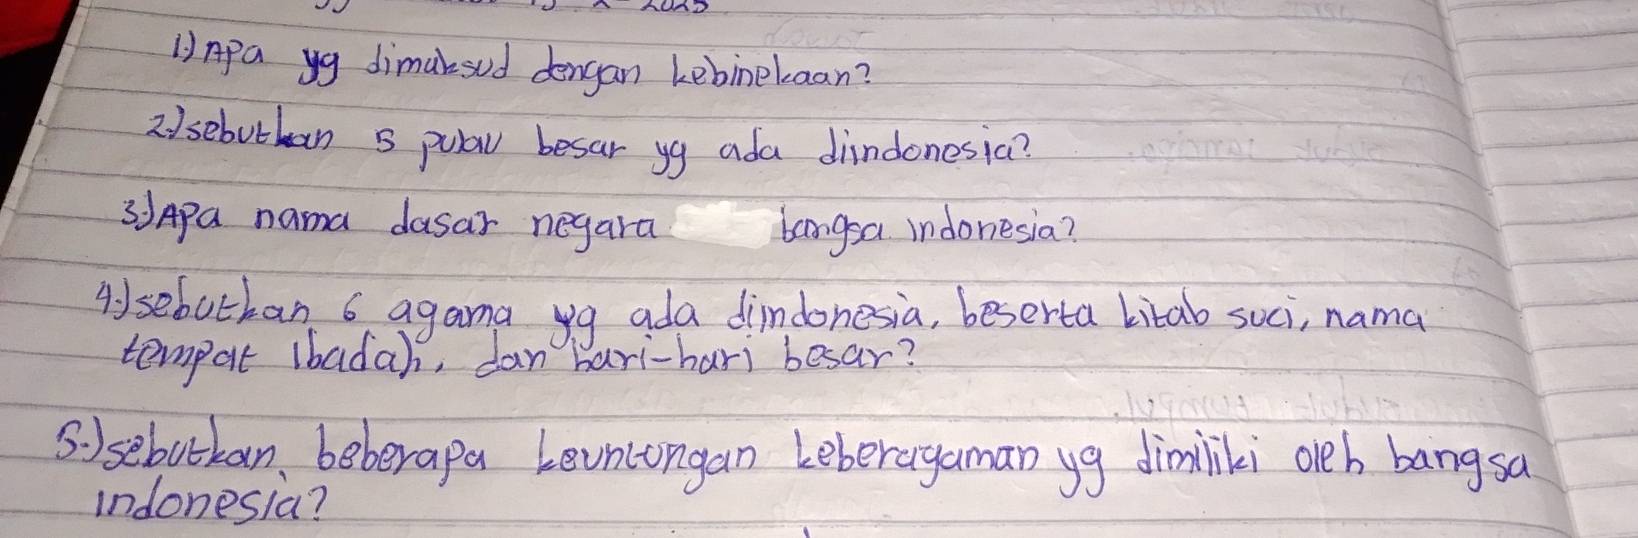 1.) Apa yg dimaksud dengan kebinekaan?
2.) sebutkan 5 pulau besar yg ada diindonesia?
3.) Apa nama dasar negara bangsa indonesia?
4.) sebutkan 6 agama yg ada diindonesia, beserta kitab suci, nama
tempat ibadah, dan hari-hari besar?
5.) sebutkan beberapa keuntungan keberagaman yg dimiliki oleh bangsa
indonesia?